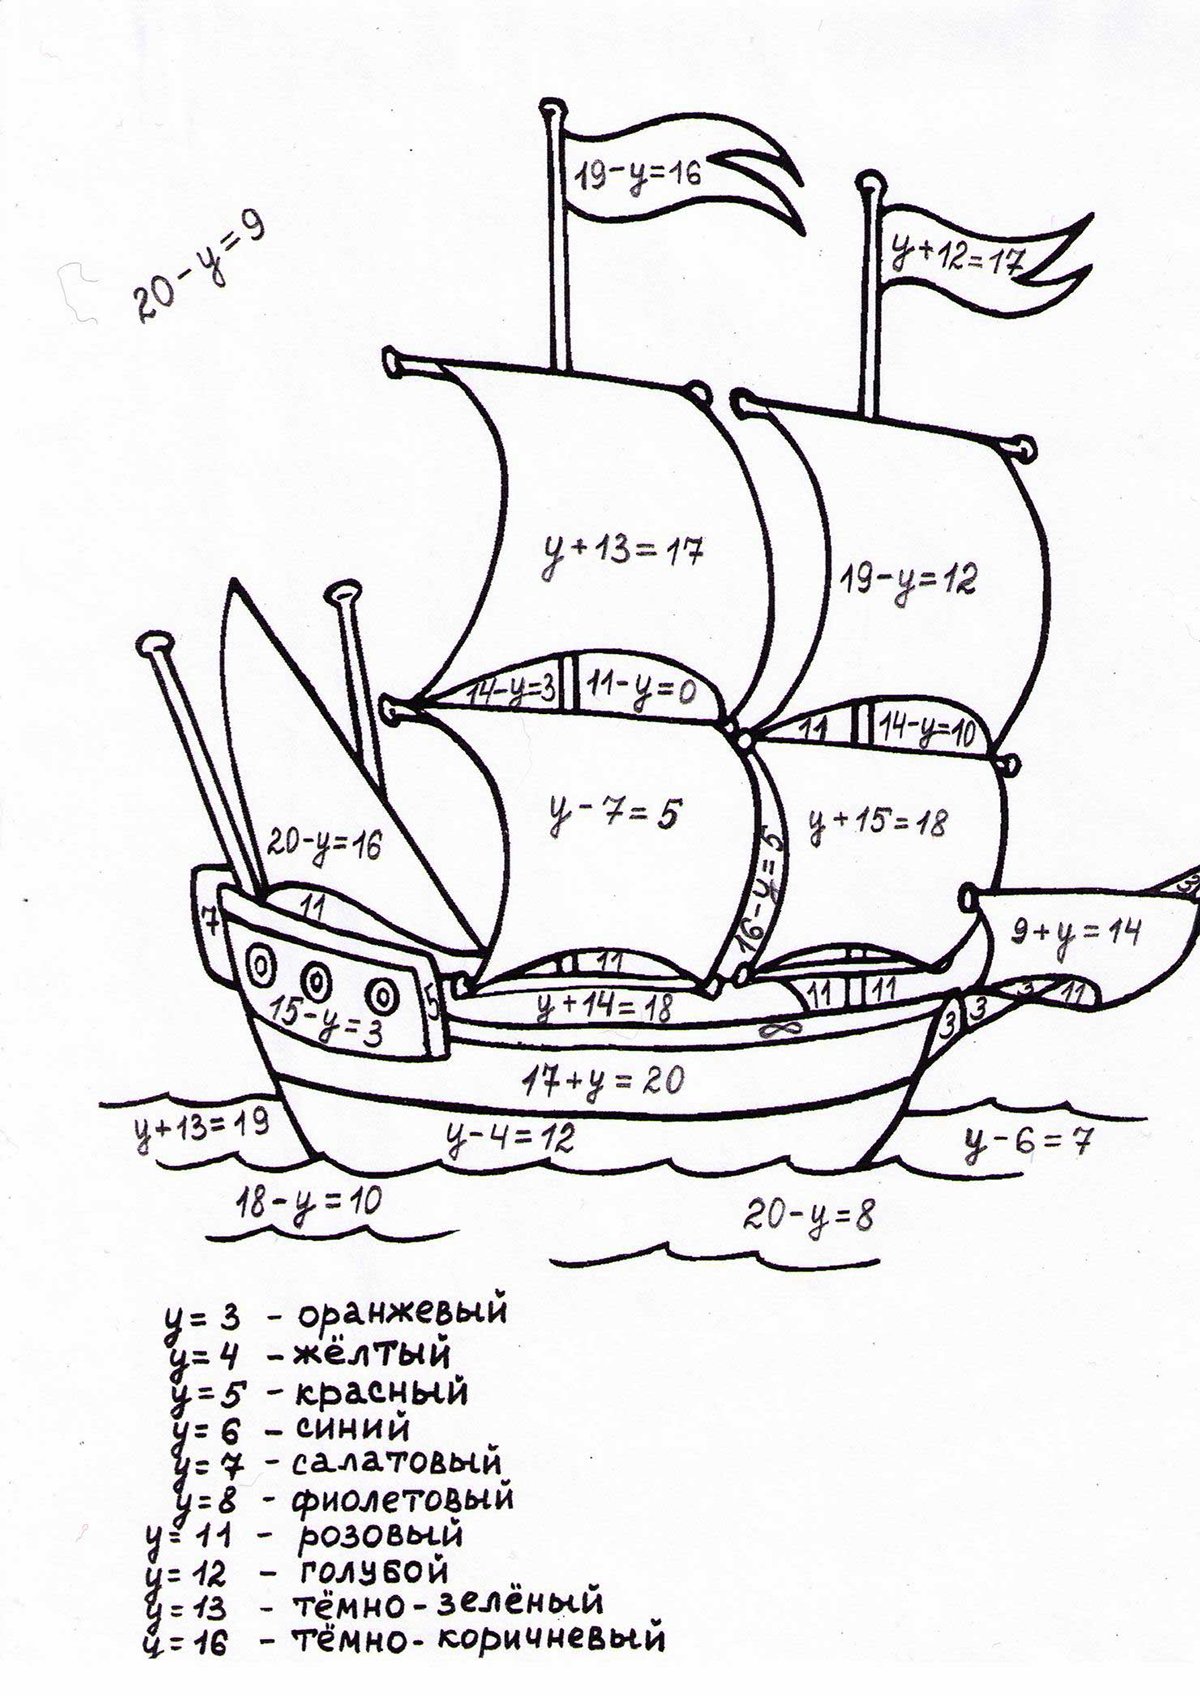 19-у=16
у+12=17
20-у=9
у+13=17
19-у=12
14-у=3
11-у=0
11
14-у=10
у-7=5
у+15=18
16-у=5
20-у=16
11
7
3
9+у=14
11
5
15-у=3
у+14=18
11
11
3
3
3
11
8
17+у=20
у+13=19
у-4=12
у-6=7
18-у=10
20-у=8
у=3 - оранжевый
у=4 - жёлтый
у=5 - красный
у=6 - синий
у=7 - салатовый
у=8 - фиолетовый
у=11 - розовый
у=12 - голубой
у=13 - тёмно-зелёный
у=16 - тёмно-коричневый